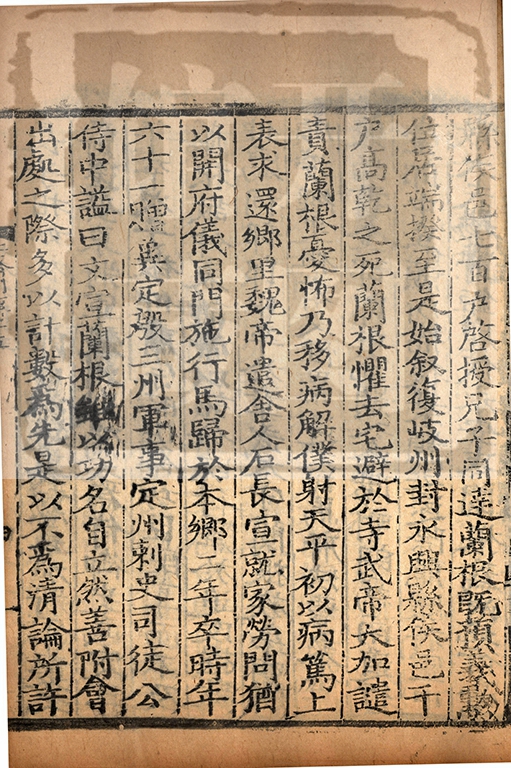 縣侯邑七百户啓授兄子同達蘭根既預義勲
位居端揆至是始叙復岐州封永興縣侯邑千
户高乾之死蘭根懼去宅避於寺武帝大加譴
責蘭根憂怖乃移病解僕射天平初以病篤上
表求還鄉里魏帝遣舍人石長宣就家勞問猶
以開府儀同門施行馬歸於本鄉二年卒時年
六十一贈冀定殷三州軍事定州刺史司徒公
侍中謚曰文宣蘭根雖以功名自立然善附會
出處之際多以計數爲先是以不爲清論所許